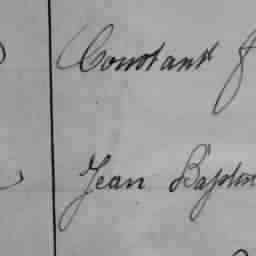 Constant
Jean Baptis